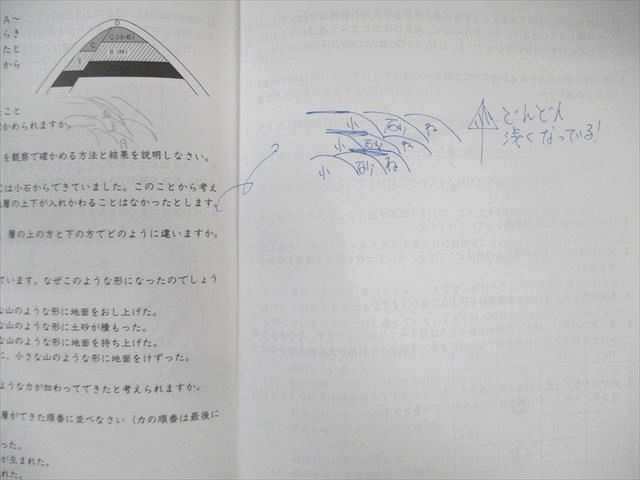 A〜
らき
たと
から
D
C(小石)
C
B(砂)
こと
かめられますか。
を観察で確かめる方法と結果を説明しなさい。
Cは小石からできていました。このことから考え
地層の上下が入れかわることはなかったとします。
、層の上の方と下の方でどのように違いますか。
ています。なぜこのような形になったのでしょう
な山のような形に地面をおし上げた。
な山のような形に土砂が積もった。
な山のような形に地面を持ち上げた。
に、小さな山のような形に地面をけずった。
ような力が加わってできたと考えられますか。
層ができた順番に並べなさい（カの順番は最後に
った。
が生まれた。
れた。
小 砂 ね
小 砂 ね
小 砂 ね
どんどん
浅くなっている!